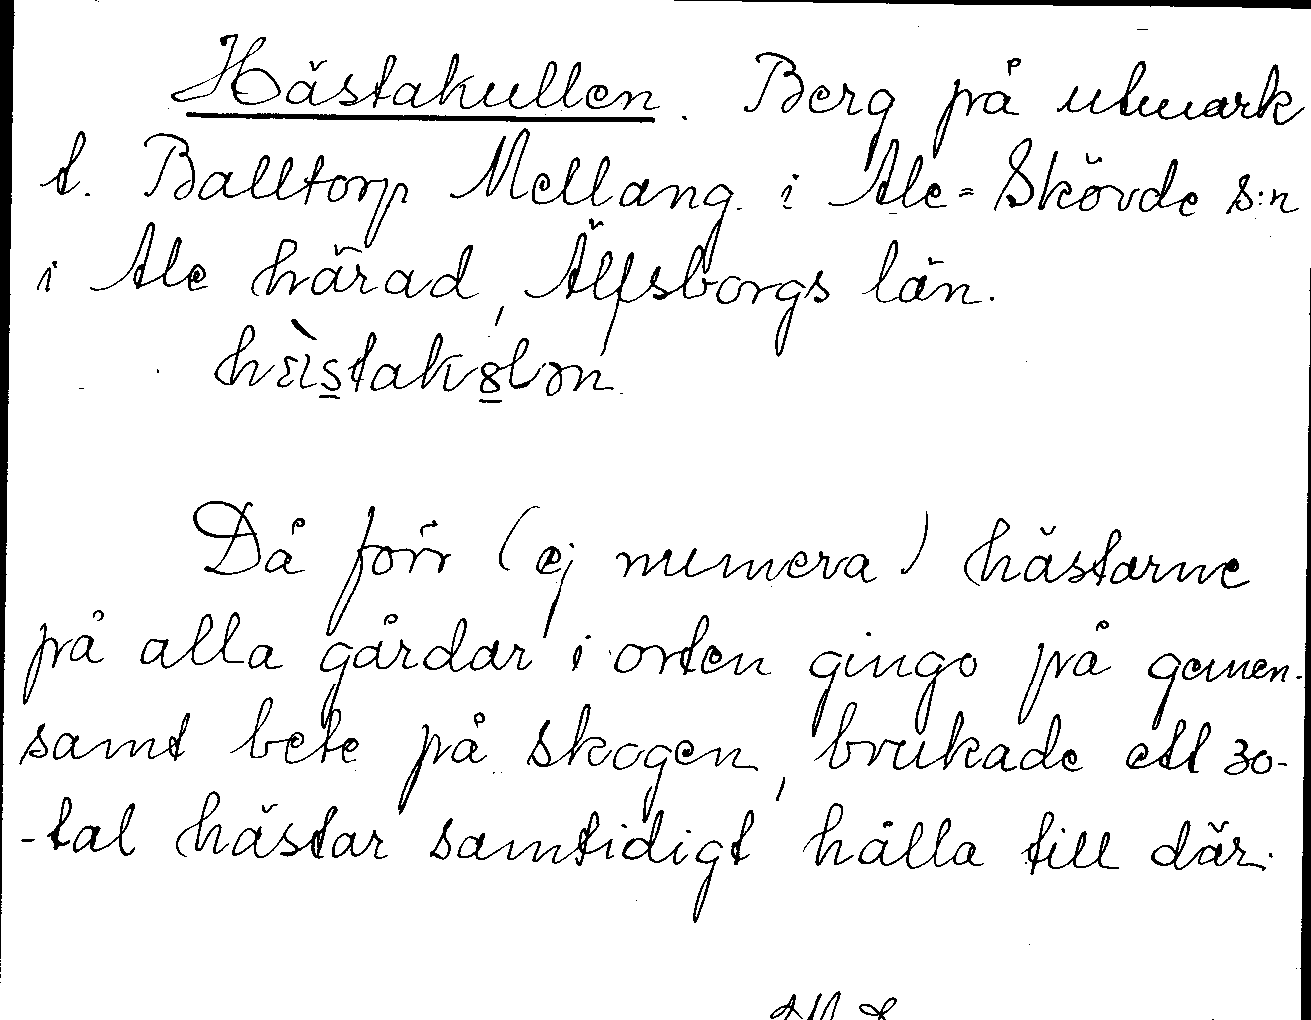 Hästakullen. Berg på utmark
t. Balltorp Mellang. i Ale-Skövde s:n
i Ale härad, Älfsborgs län.
Då förr (ej numera) hästarne
på alla gårdar i orten gingo på gemen-
samt bete på skogen, brukade ett 30-
-tal hästar samtidigt hålla till där.